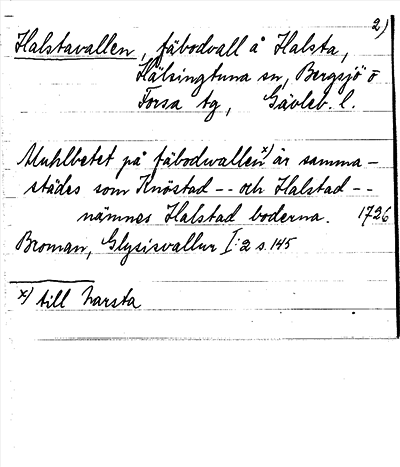 2)
Halstavallen, fäbodvall å Halsta,
Hälsingtuna sn, Bergsjö o
Forsa tg, Gävleb. l.
Muhlbetet på fäbodwallen x) är samma-
städes som Knöstad -- och Halstad --
nämnes Halstad boderna. 1726
Broman, Glysisvallur I:2 s. 145
x) till Narsta